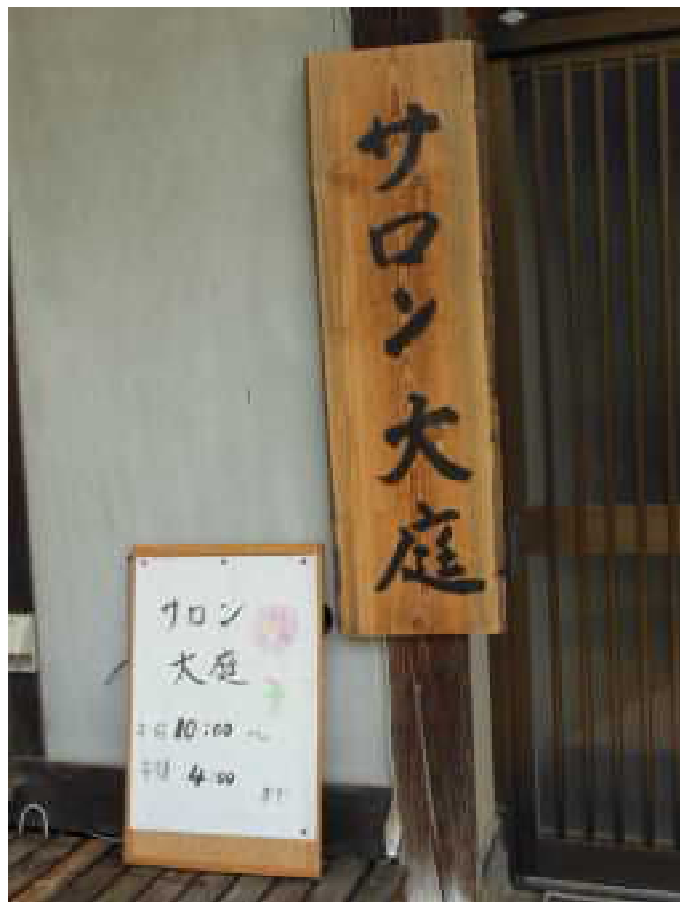 サロン大庭
サロン
大庭
10:00
4:00
まで